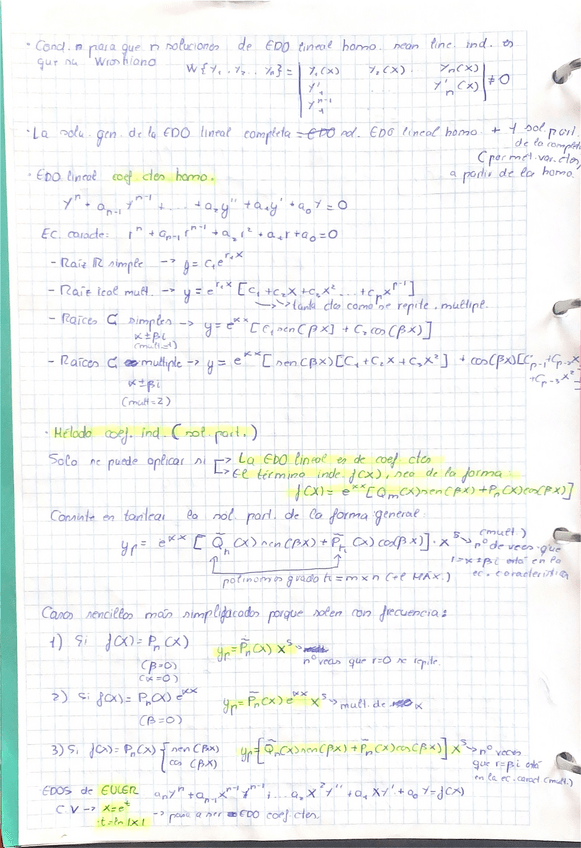 · Cond. n para que n soluciones de EDO lineal homo. sean line. ind. es
que su Wronskiano W{Y₁, Y₂ ... Yₙ} = | Y₁(x) Y₂(x) . Yₙ(x) | ≠ 0
Y'₁ . . . Y'ₙ(x)
Y₁ⁿ⁻¹
· La solu. gen. de la EDO lineal completa = sol. EDO lineal homo. + 1 sol. part.
de la completa
(por met. var. ctes,
a partir de la homo.
· EDO lineal coef ctes homo.
Yⁿ + aₙ₋₁ Yⁿ⁻¹ + ... + a₂y'' + a₁y' + a₀Y = 0
Ec. caracte: rⁿ + aₙ₋₁ rⁿ⁻¹ + a₂r² + a₁r + a₀ = 0
- Raiz ℝ simple -> y = c₁e^(r₁x)
- Raiz real mult. -> y = e^(r₁x) [C₁ + C₂x + C₃x² ... + Cₚx^(p-1)]
->tanta ctes como se repite. multipl.
- Raíces ℂ simples -> y = e^(αx) [C₁ sen(βx) + C₂ cos(βx)]
α±βi
(mult=1)
- Raíces ℂ multiple -> y = e^(αx) [sen(βx)[C₁ + C₂x + C₃x²] + cos(βx)[Cₚ₋₁ + Cₚ₋₂x
+Cₚ₋₃x²
α±βi
(mult=2)
· Método coef. ind. (sol. part.)
Solo se puede aplicar si -> La EDO lineal es de coef. ctes
-> El término inde. f(x), sea de la forma:
f(x) = e^(αx) [Qₘ(x) sen(βx) + Pₙ(x) cos(βx)]
Consiste en tantear la sol. part. de la forma general:
yₚ = e^(αx) [Q̃ₕ(x) sen(βx) + P̃ₕ(x) cos(βx)] · xˢ -> (mult)
nº de veces que
r=α±βi está en la
ec. característica
polinomios grado h = m x n (el MAX.)
Casos sencillos más simplificados porque salen con frecuencia:
1) Si f(x) = Pₙ(x) yₚ = P̃ₙ(x) xˢ ->
nº veces que r=0 se repite.
(β=0)
(α=0)
2) Si f(x) = Pₙ(x) e^(αx) yₚ = P̃ₙ(x) e^(αx) xˢ -> mult. de α
(β=0)
3) Si f(x) = Pₙ(x) { sen(βx) yₚ = [Q̃ₙ(x) sen(βx) + P̃ₙ(x) cos(βx)] xˢ -> nº veces
cos(βx)
que r=βi está
en la ec. caract (mult.)
EDOS de EULER aₙYⁿ + aₙ₋₁ xⁿ⁻¹ Yⁿ⁻¹ + ... a₂ x² Y'' + a₁ x Y' + a₀ Y = f(x)
C V -> x = eᵗ
t = ln |x| -> pasa a ser EDO coef ctes.